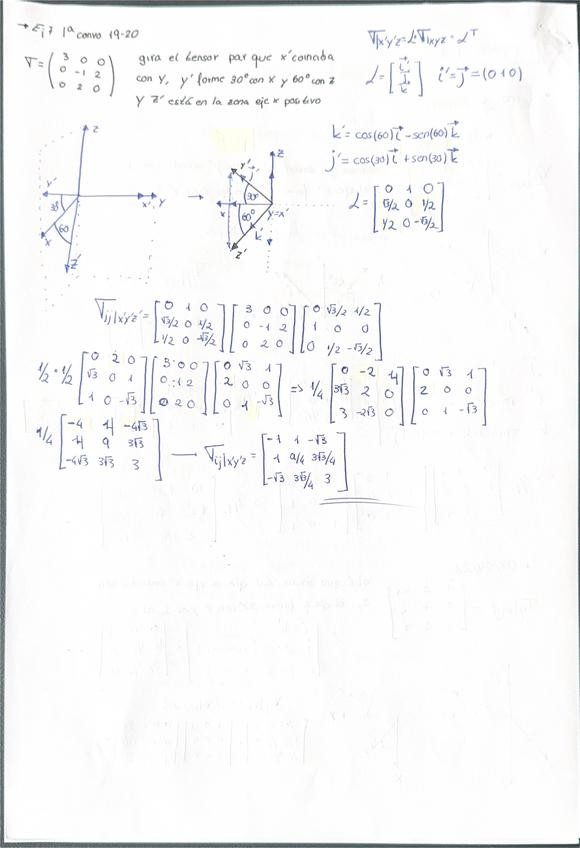 → Ej 7 1ª convo 19-20
σ = ( 3 0 0
0 -1 2
0 2 0 )
gira el tensor par que x' coincida
con Y, y' forme 30° con x y 60° con z
y z' está en la zona eje x positivo
σ|x'y'z' = L · σ|xyz · Lᵀ
L = [ i'
j'
k' ] i' = j = (0 1 0)
k' = cos(60) i - sen(60) k
j' = cos(30) i + sen(30) k
L = [ 0 1 0
√3/2 0 1/2
1/2 0 -√3/2 ]
z
y'
30
60
x
z'
x'
y
→
z
y'
j'
30°
x
60°
y=x'
k'
z'
σij|x'y'z' = [ 0 1 0
√3/2 0 1/2
1/2 0 -√3/2 ] [ 3 0 0
0 -1 2
0 2 0 ] [ 0 √3/2 1/2
1 0 0
0 1/2 -√3/2 ]
1/2 · 1/2 [ 0 2 0
√3 0 1
1 0 -√3 ] [ 3 0 0
0 -1 2
0 2 0 ] [ 0 √3 1
2 0 0
0 1 -√3 ] => 1/4 [ 0 -2 4
3√3 2 0
3 -2√3 0 ] [ 0 √3 1
2 0 0
0 1 -√3 ]
1/4 [ -4 4 -4√3
4 9 3√3
-4√3 3√3 3 ] → σij|x'y'z' = [ -1 1 -√3
1 9/4 3√3/4
-√3 3√3/4 3 ]